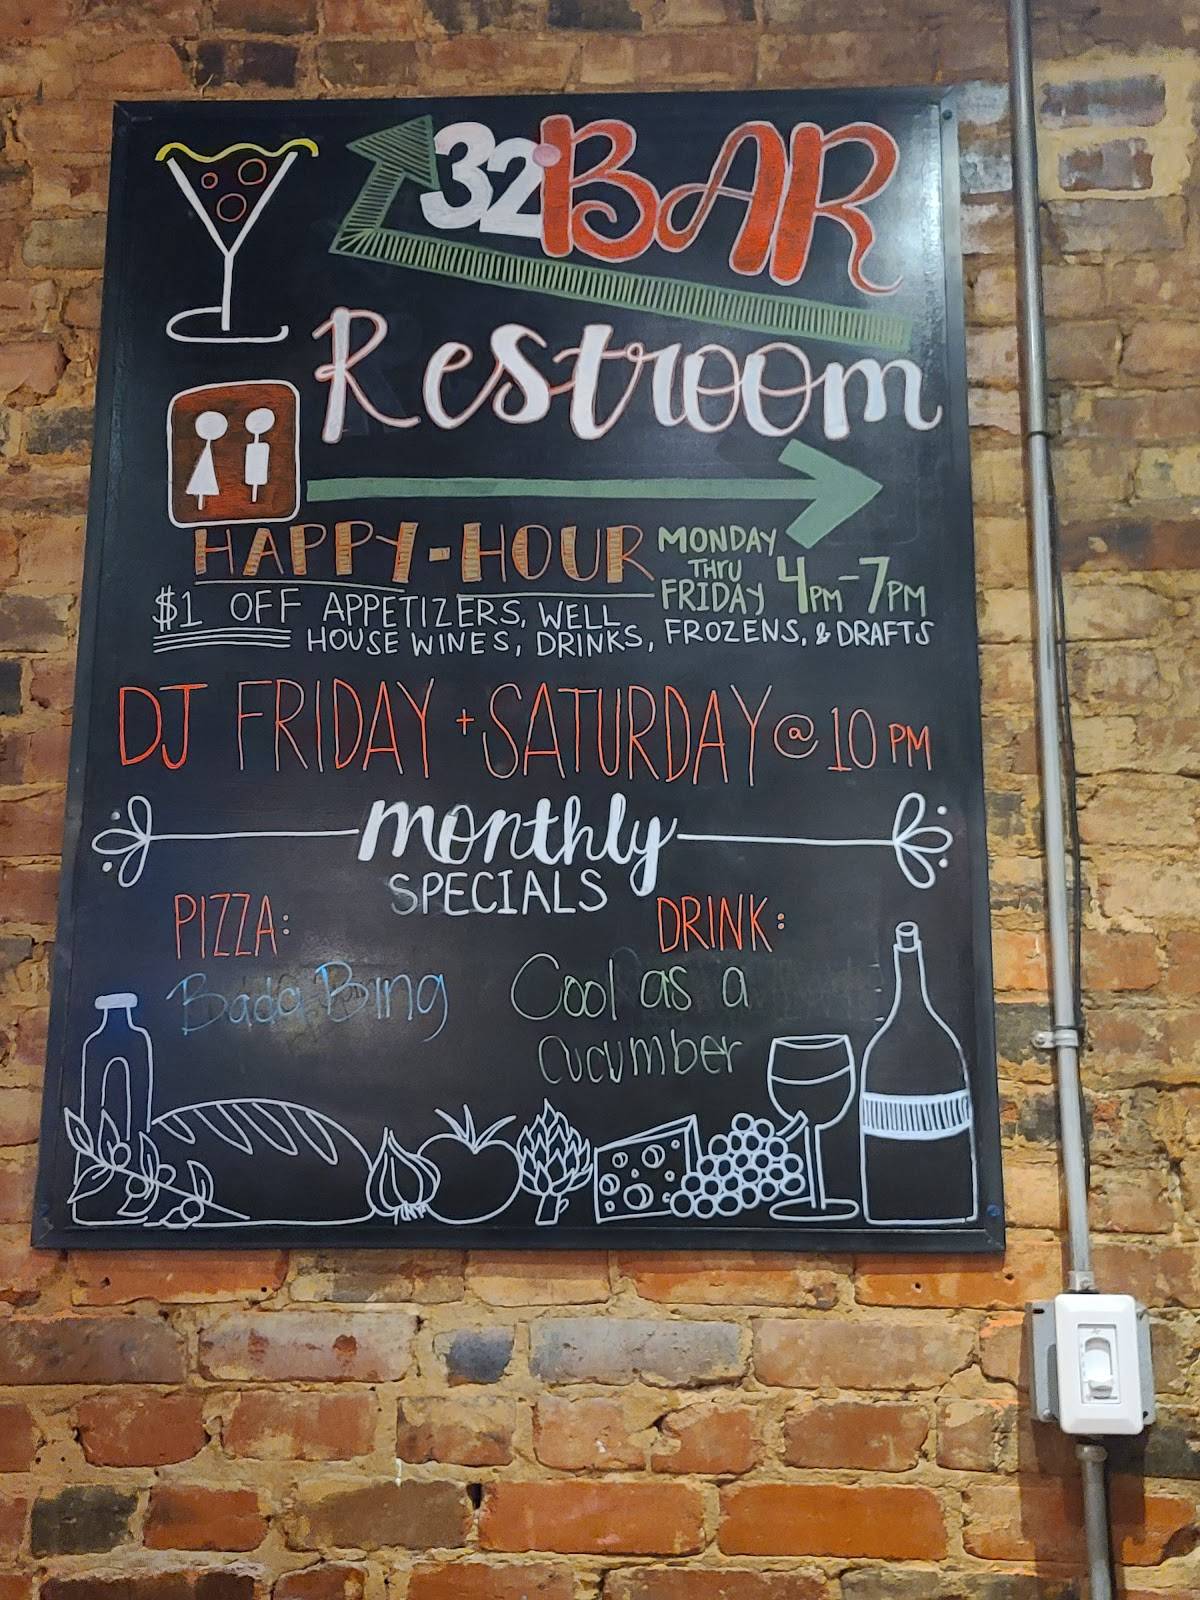 32° BAR
Restroom
HAPPY-HOUR MONDAY THRU FRIDAY 4PM-7PM
$1 OFF APPETIZERS, WELL
HOUSE WINES, DRINKS, FROZENS, & DRAFTS
DJ FRIDAY + SATURDAY @ 10 PM
monthly
SPECIALS
PIZZA:
Bada Bing
DRINK:
Cool as a
cucumber